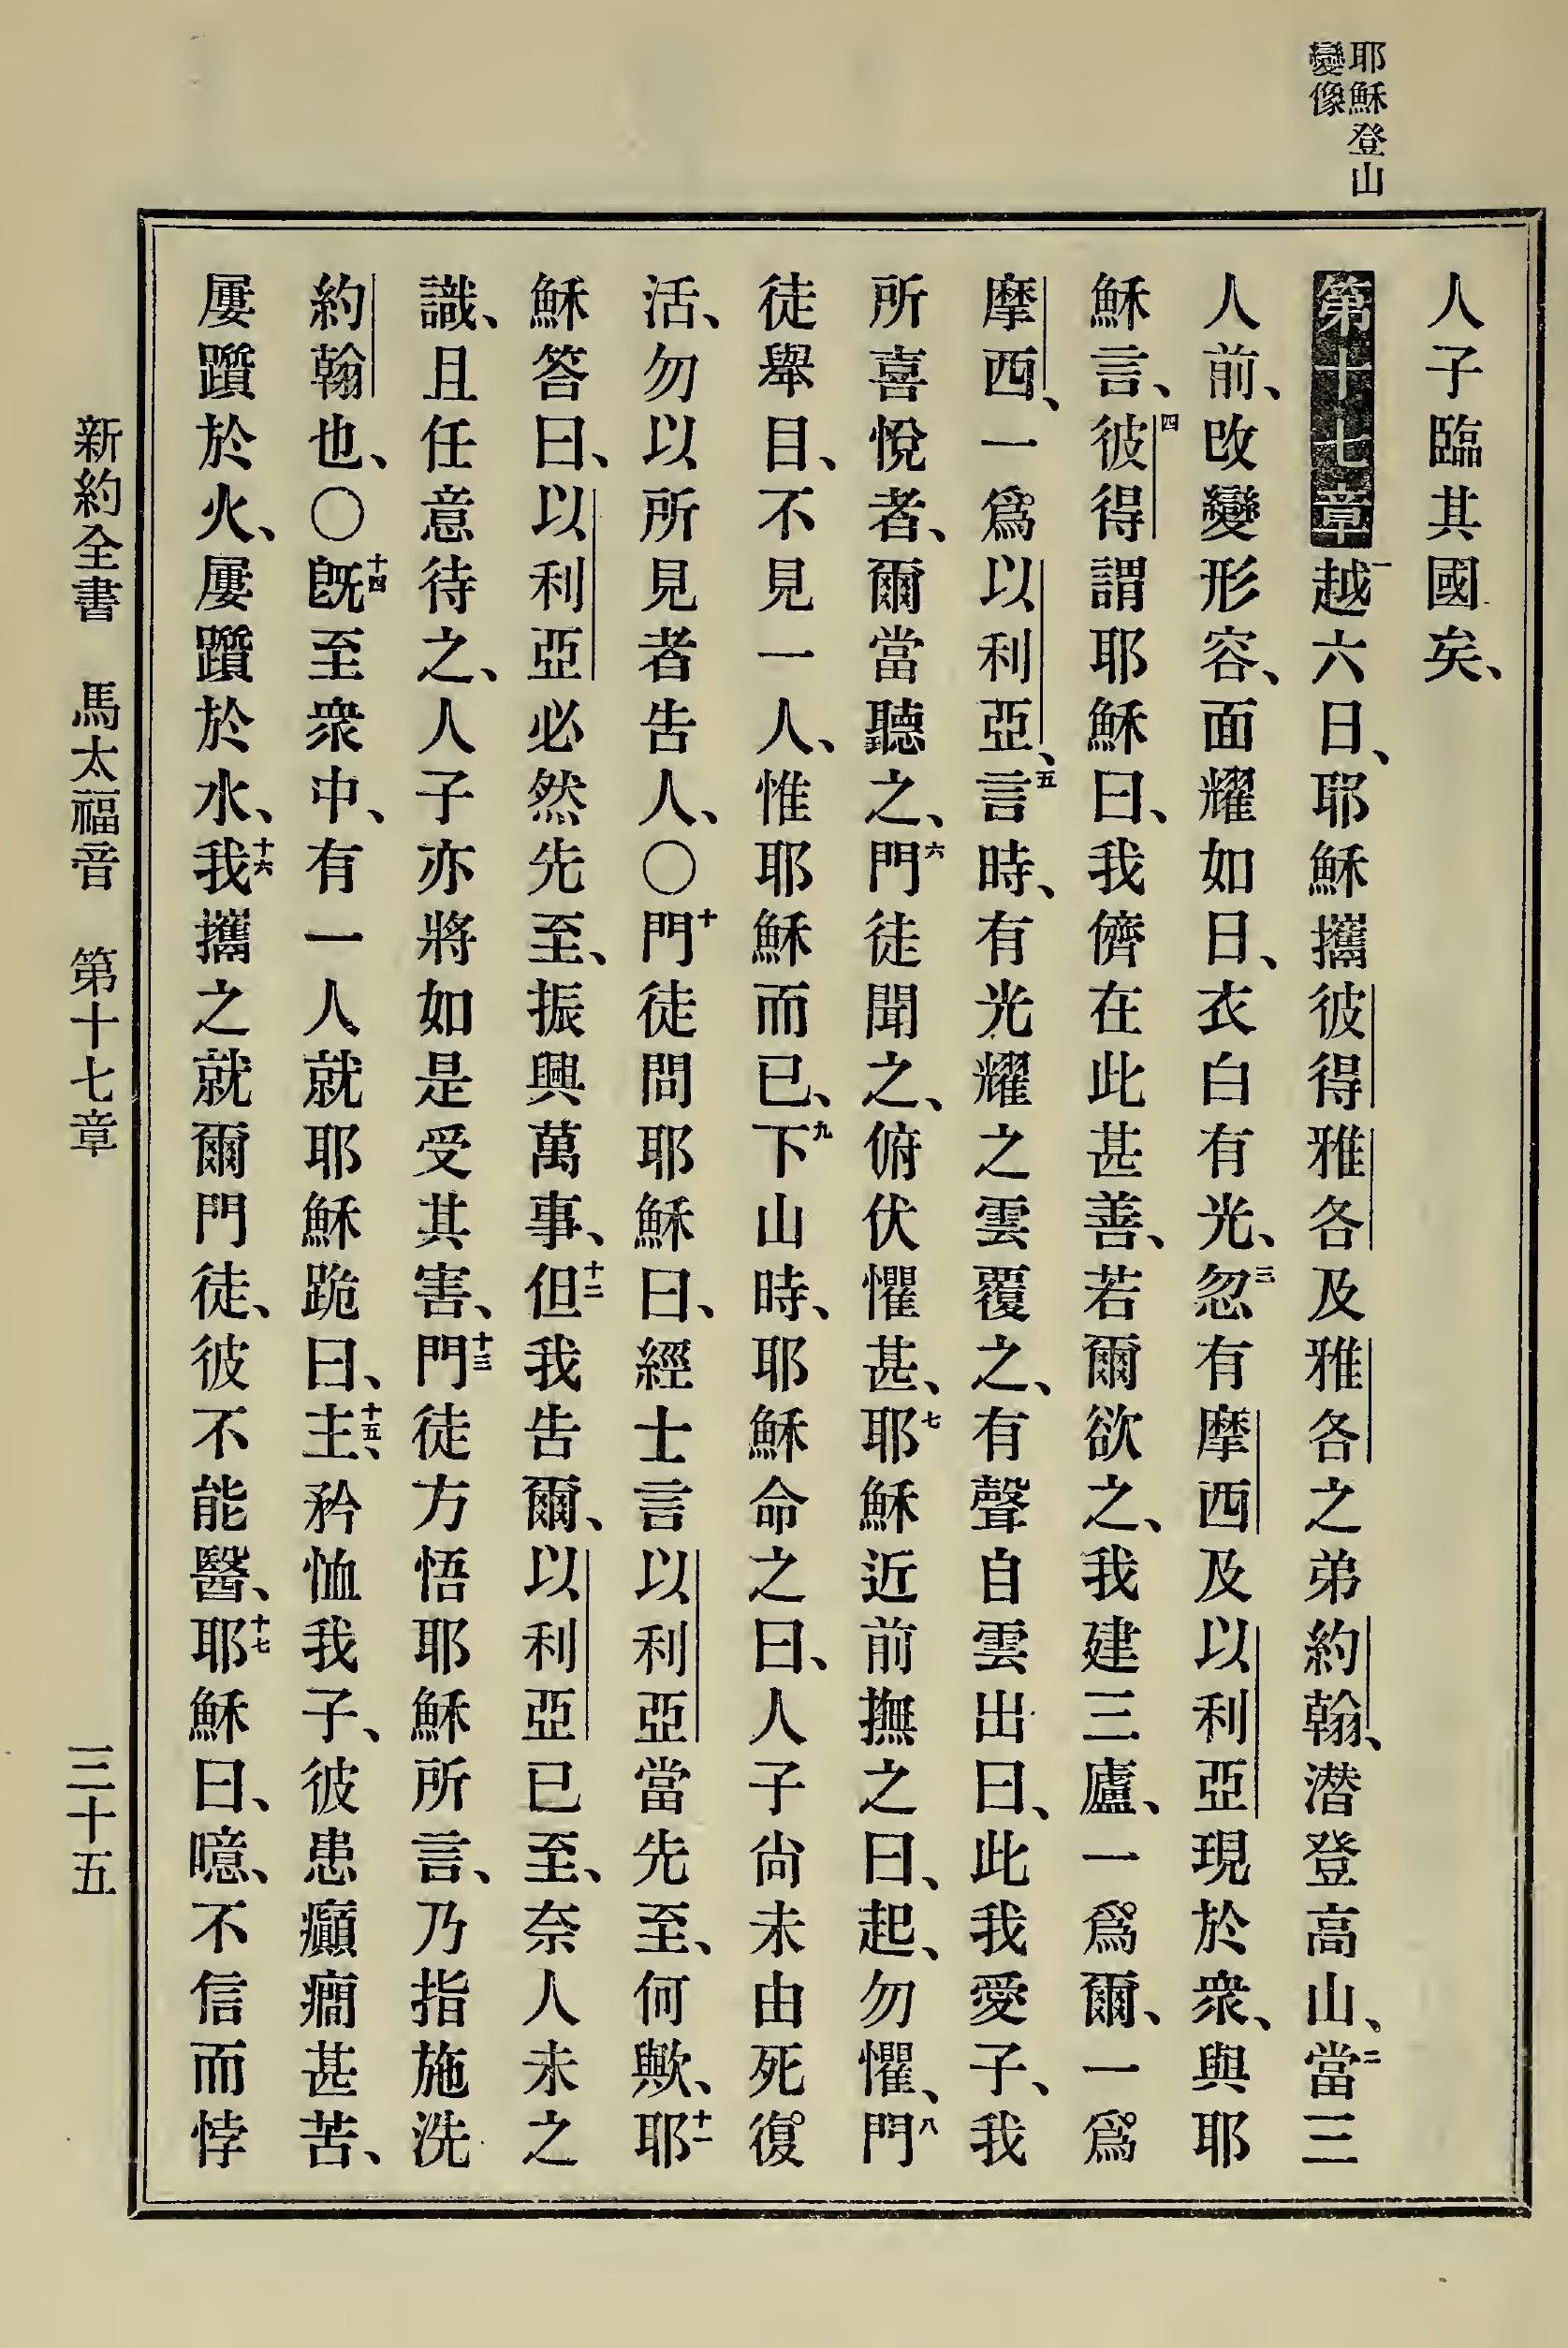 耶穌登山
變像
人子臨其國矣、
第十七章一越六日、耶穌攜彼得雅各及雅各之弟約翰、潛登高山、二當三
人前、改變形容、面耀如日、衣白有光、三忽有摩西及以利亞現於衆、與耶
穌言、四彼得謂耶穌曰、我儕在此甚善、若爾欲之、我建三廬、一爲爾、一爲
摩西、一爲以利亞、五言時、有光耀之雲覆之、有聲自雲出曰、此我愛子、我
所喜悅者、爾當聽之、六門徒聞之、俯伏懼甚、七耶穌近前撫之曰、起、勿懼、八門
徒舉目、不見一人、惟耶穌而已、九下山時、耶穌命之曰、人子尙未由死復
活、勿以所見者告人、○十門徒問耶穌曰、經士言以利亞當先至、何歟、十一耶
穌答曰、以利亞必然先至、振興萬事、十二但我告爾、以利亞已至、奈人未之
識、且任意待之、人子亦將如是受其害、十三門徒方悟耶穌所言、乃指施洗
約翰也、○十四旣至衆中、有一人就耶穌跪曰、十五主、矜恤我子、彼患癲癎甚苦、
屢躓於火、屢躓於水、十六我攜之就爾門徒、彼不能醫、十七耶穌曰、噫、不信而悖
新約全書 馬太福音 第十七章 三十五